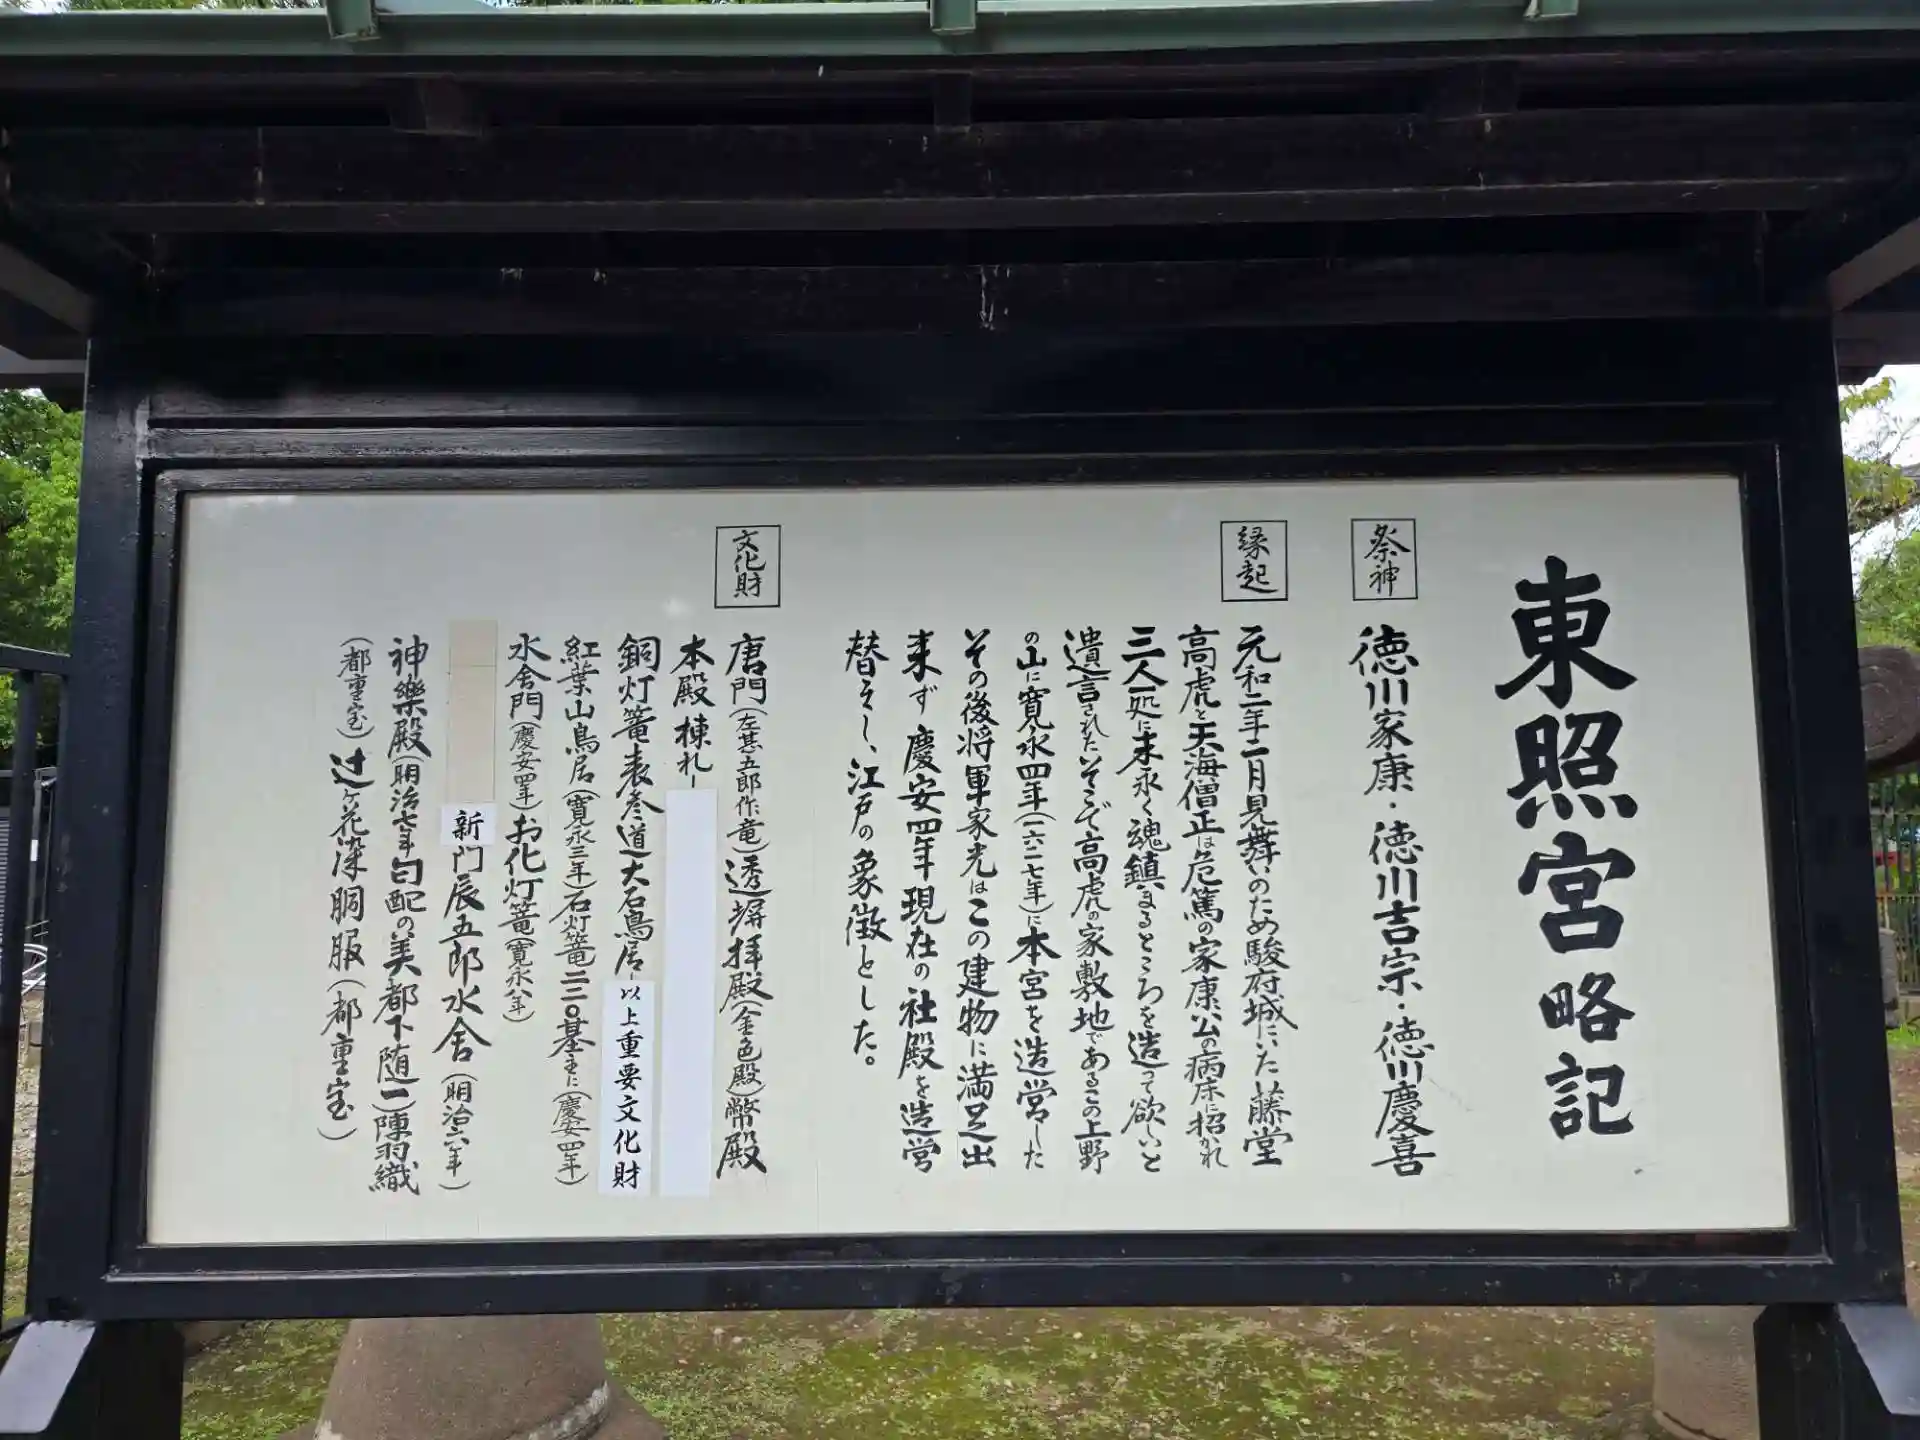 東照宮略記
祭神
徳川家康・徳川吉宗・徳川慶喜
縁起
元和二年二月見舞いのため駿府城にいた藤堂
高虎と天海僧正は危篤の家康公の病床に招かれ
三人一処に末永く魂鎮まるところを造って欲しいと
遺言された。そこで高虎の家敷地であるこの上野
の山に寛永四年(一六二七年)に本宮を造営した
その後将軍家光はこの建物に満足出
来ず 慶安四年現在の社殿を造営
替えし、江戸の象徴とした。
文化財
唐門(左甚五郎作竜)透塀拝殿(金色殿)幣殿
本殿棟札ー
銅灯篭表参道大石鳥居ー以上重要文化財
紅葉山鳥居(寛永三年)石灯篭二三〇基主に(慶安四年)
水舎門(慶安四年)お化灯篭(寛永八年)
新門辰五郎水舎(明治六年)
神楽殿(明治七年勾配の美都下随一)陣羽織
(都重宝)辻ヶ花染胴服(都重宝)